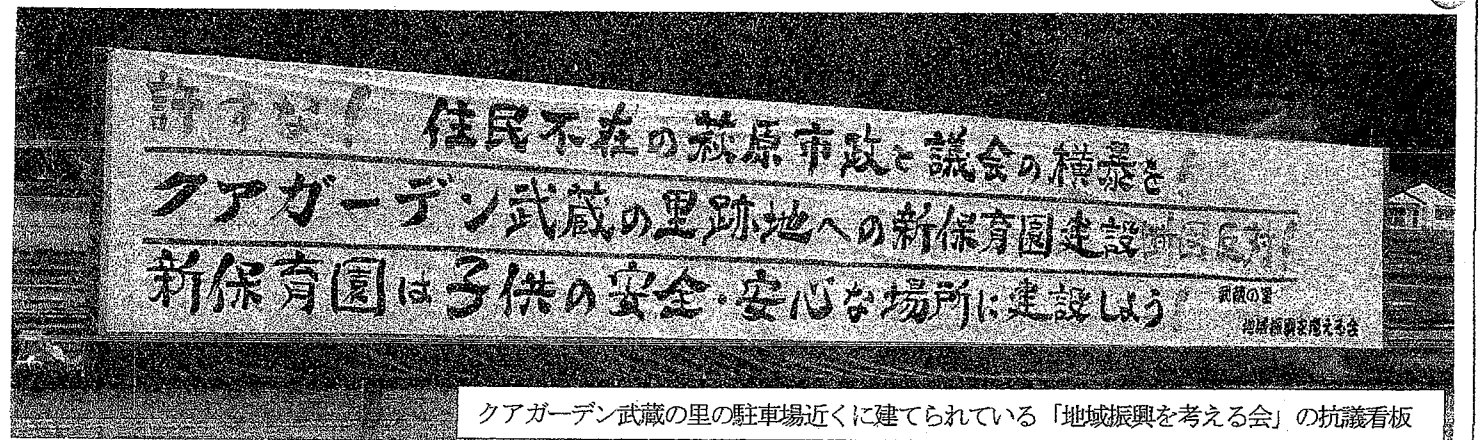 許すな! 住民不在の萩原市政と議会の横暴を!
クアガーデン武蔵の里跡地への新保育園建設断固反対!
新保育園は子供の安全・安心な場所に建設しよう
武蔵の里
地域振興を考える会
クアガーデン武蔵の里の駐車場近くに建てられている「地域振興を考える会」の抗議看板